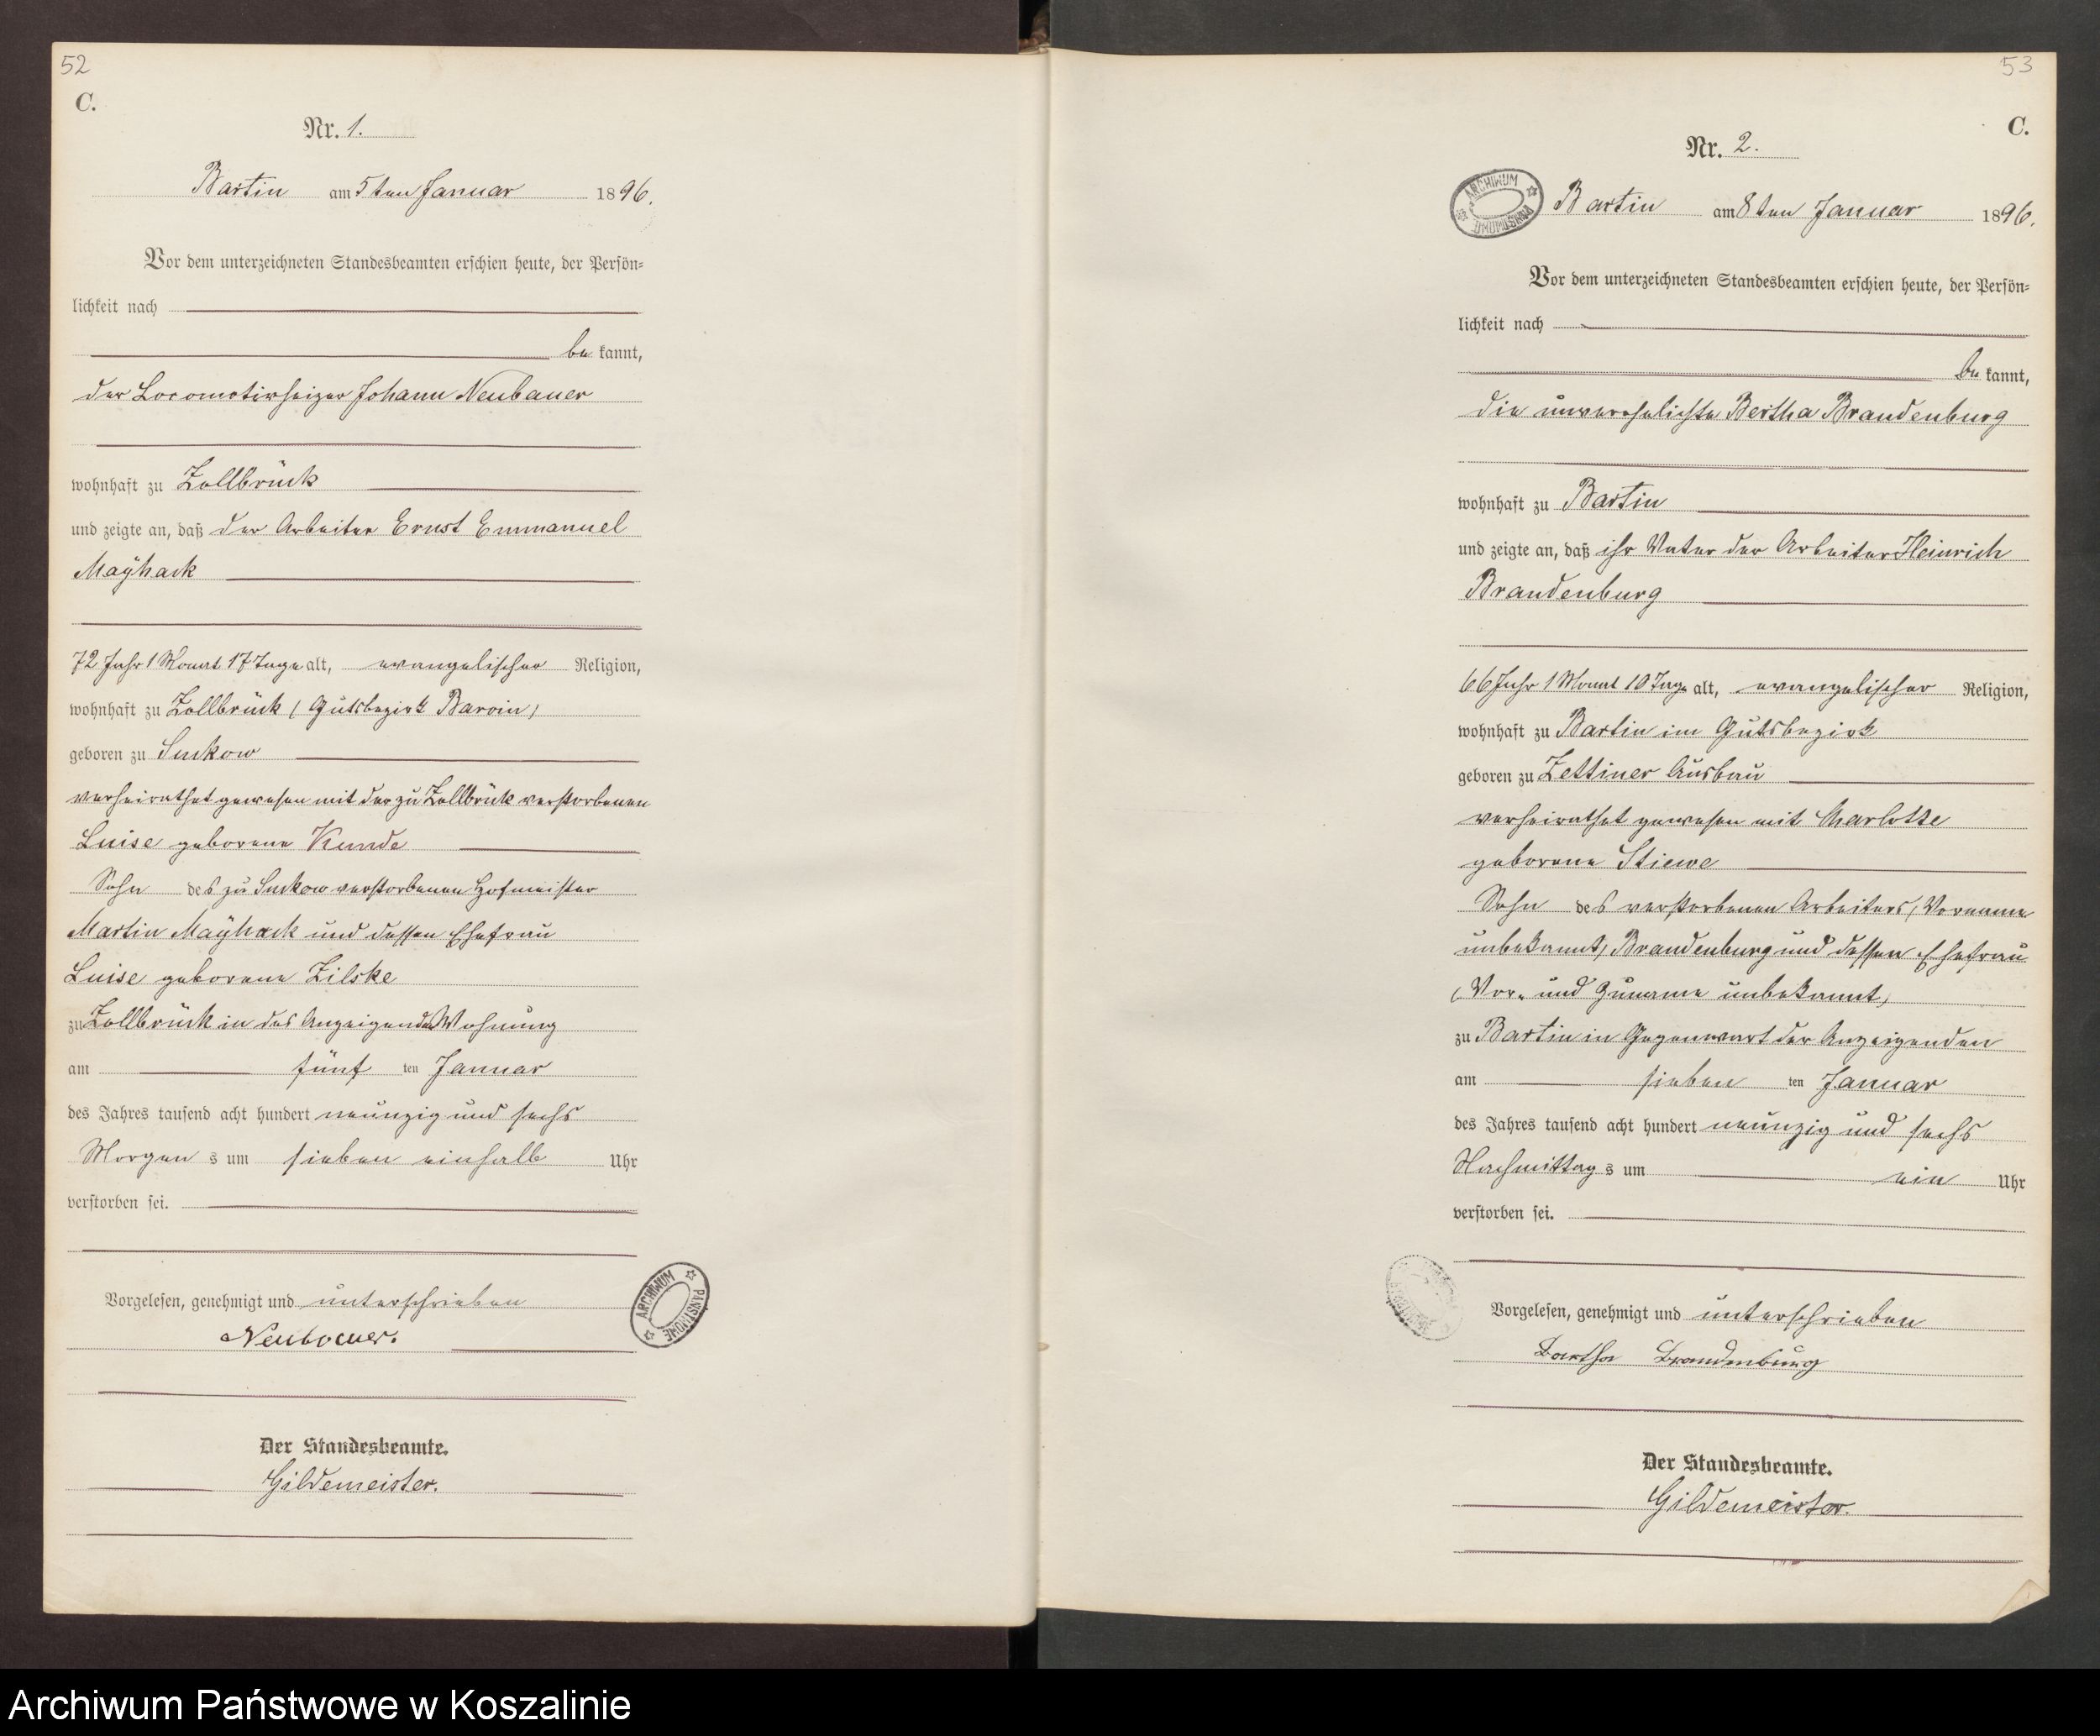 52
C.
Nr. 1.
Bartin am 5ten Januar 1896.
Vor dem unterzeichneten Standesbeamten erschien heute, der Persön-
lichkeit nach
be kannt,
der Locomotivheizer Johann Neubauer
wohnhaft zu Zollbrück
und zeigte an, daß der Arbeiter Ernst Emmanuel
Maÿhack
72 Jahr 1 Monat 17 Tage alt, evangelischer Religion,
wohnhaft zu Zollbrück (Gutsbezirk Barvin)
geboren zu Suckow
verheirathet gewesen mit der zu Zollbrück verstorbenen
Luise geborene Kunde
Sohn des zu Suckow verstorbenen Hofmeister
Martin Maÿhack und dessen Ehefrau
Luise geborene Zilske
zu Zollbrück in des Anzeigenden Wohnung
am fünf ten Januar
des Jahres tausend acht hundert neunzig und sechs
Morgen s um sieben einhalb Uhr
verstorben sei.
Vorgelesen, genehmigt und unterschrieben
Neubauer.
ARCHIWUM PAŃSTWOWE
Der Standesbeamte.
Gildemeister.
53
C.
Nr. 2.
ARCHIWUM PAŃSTWOWE
Bartin am 8ten Januar 1896.
Vor dem unterzeichneten Standesbeamten erschien heute, der Persön-
lichkeit nach
be kannt,
die unverehelichte Bertha Brandenburg
wohnhaft zu Bartin
und zeigte an, daß ihr Vater der Arbeiter Heinrich
Brandenburg
66 Jahr 1 Monat 10 Tage alt, evangelischer Religion,
wohnhaft zu Bartin im Gutsbezirk
geboren zu Zettiner Ausbau
verheirathet gewesen mit Charlotte
geborene Stiewe
Sohn des verstorbenen Arbeiters (Vorname
unbekannt) Brandenburg und dessen Ehefrau
(Vor- und Zuname unbekannt)
zu Bartin in Gegenwart der Anzeigenden
am sieben ten Januar
des Jahres tausend acht hundert neunzig und sechs
Nachmittag s um ein Uhr
verstorben sei.
Vorgelesen, genehmigt und unterschrieben
Bertha Brandenburg
Der Standesbeamte.
Gildemeister.
Archiwum Państwowe w Koszalinie